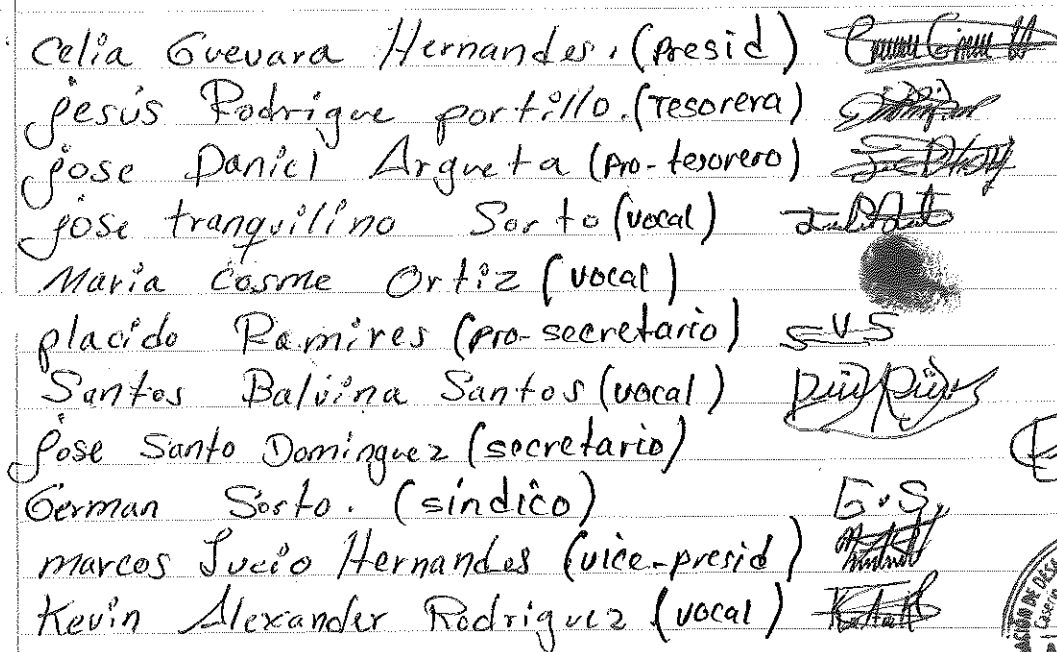 Celia Guevara Hernandes. (presid)
jesús Rodrigue portillo. (Tesorera)
jose Daniel Argueta (pro-tesorero)
jose tranquilino Sorto (vocal)
Maria Cosme Ortiz (vocal)
placido Ramires (pro-secretario) SVS
Santos Balvina Santos (vocal)
jose Santo Dominguez (secretario)
German Sorto. (síndico) G.S.
marcos Lucio Hernandes (vice-presid)
Kevin Alexander Rodriguez (vocal)